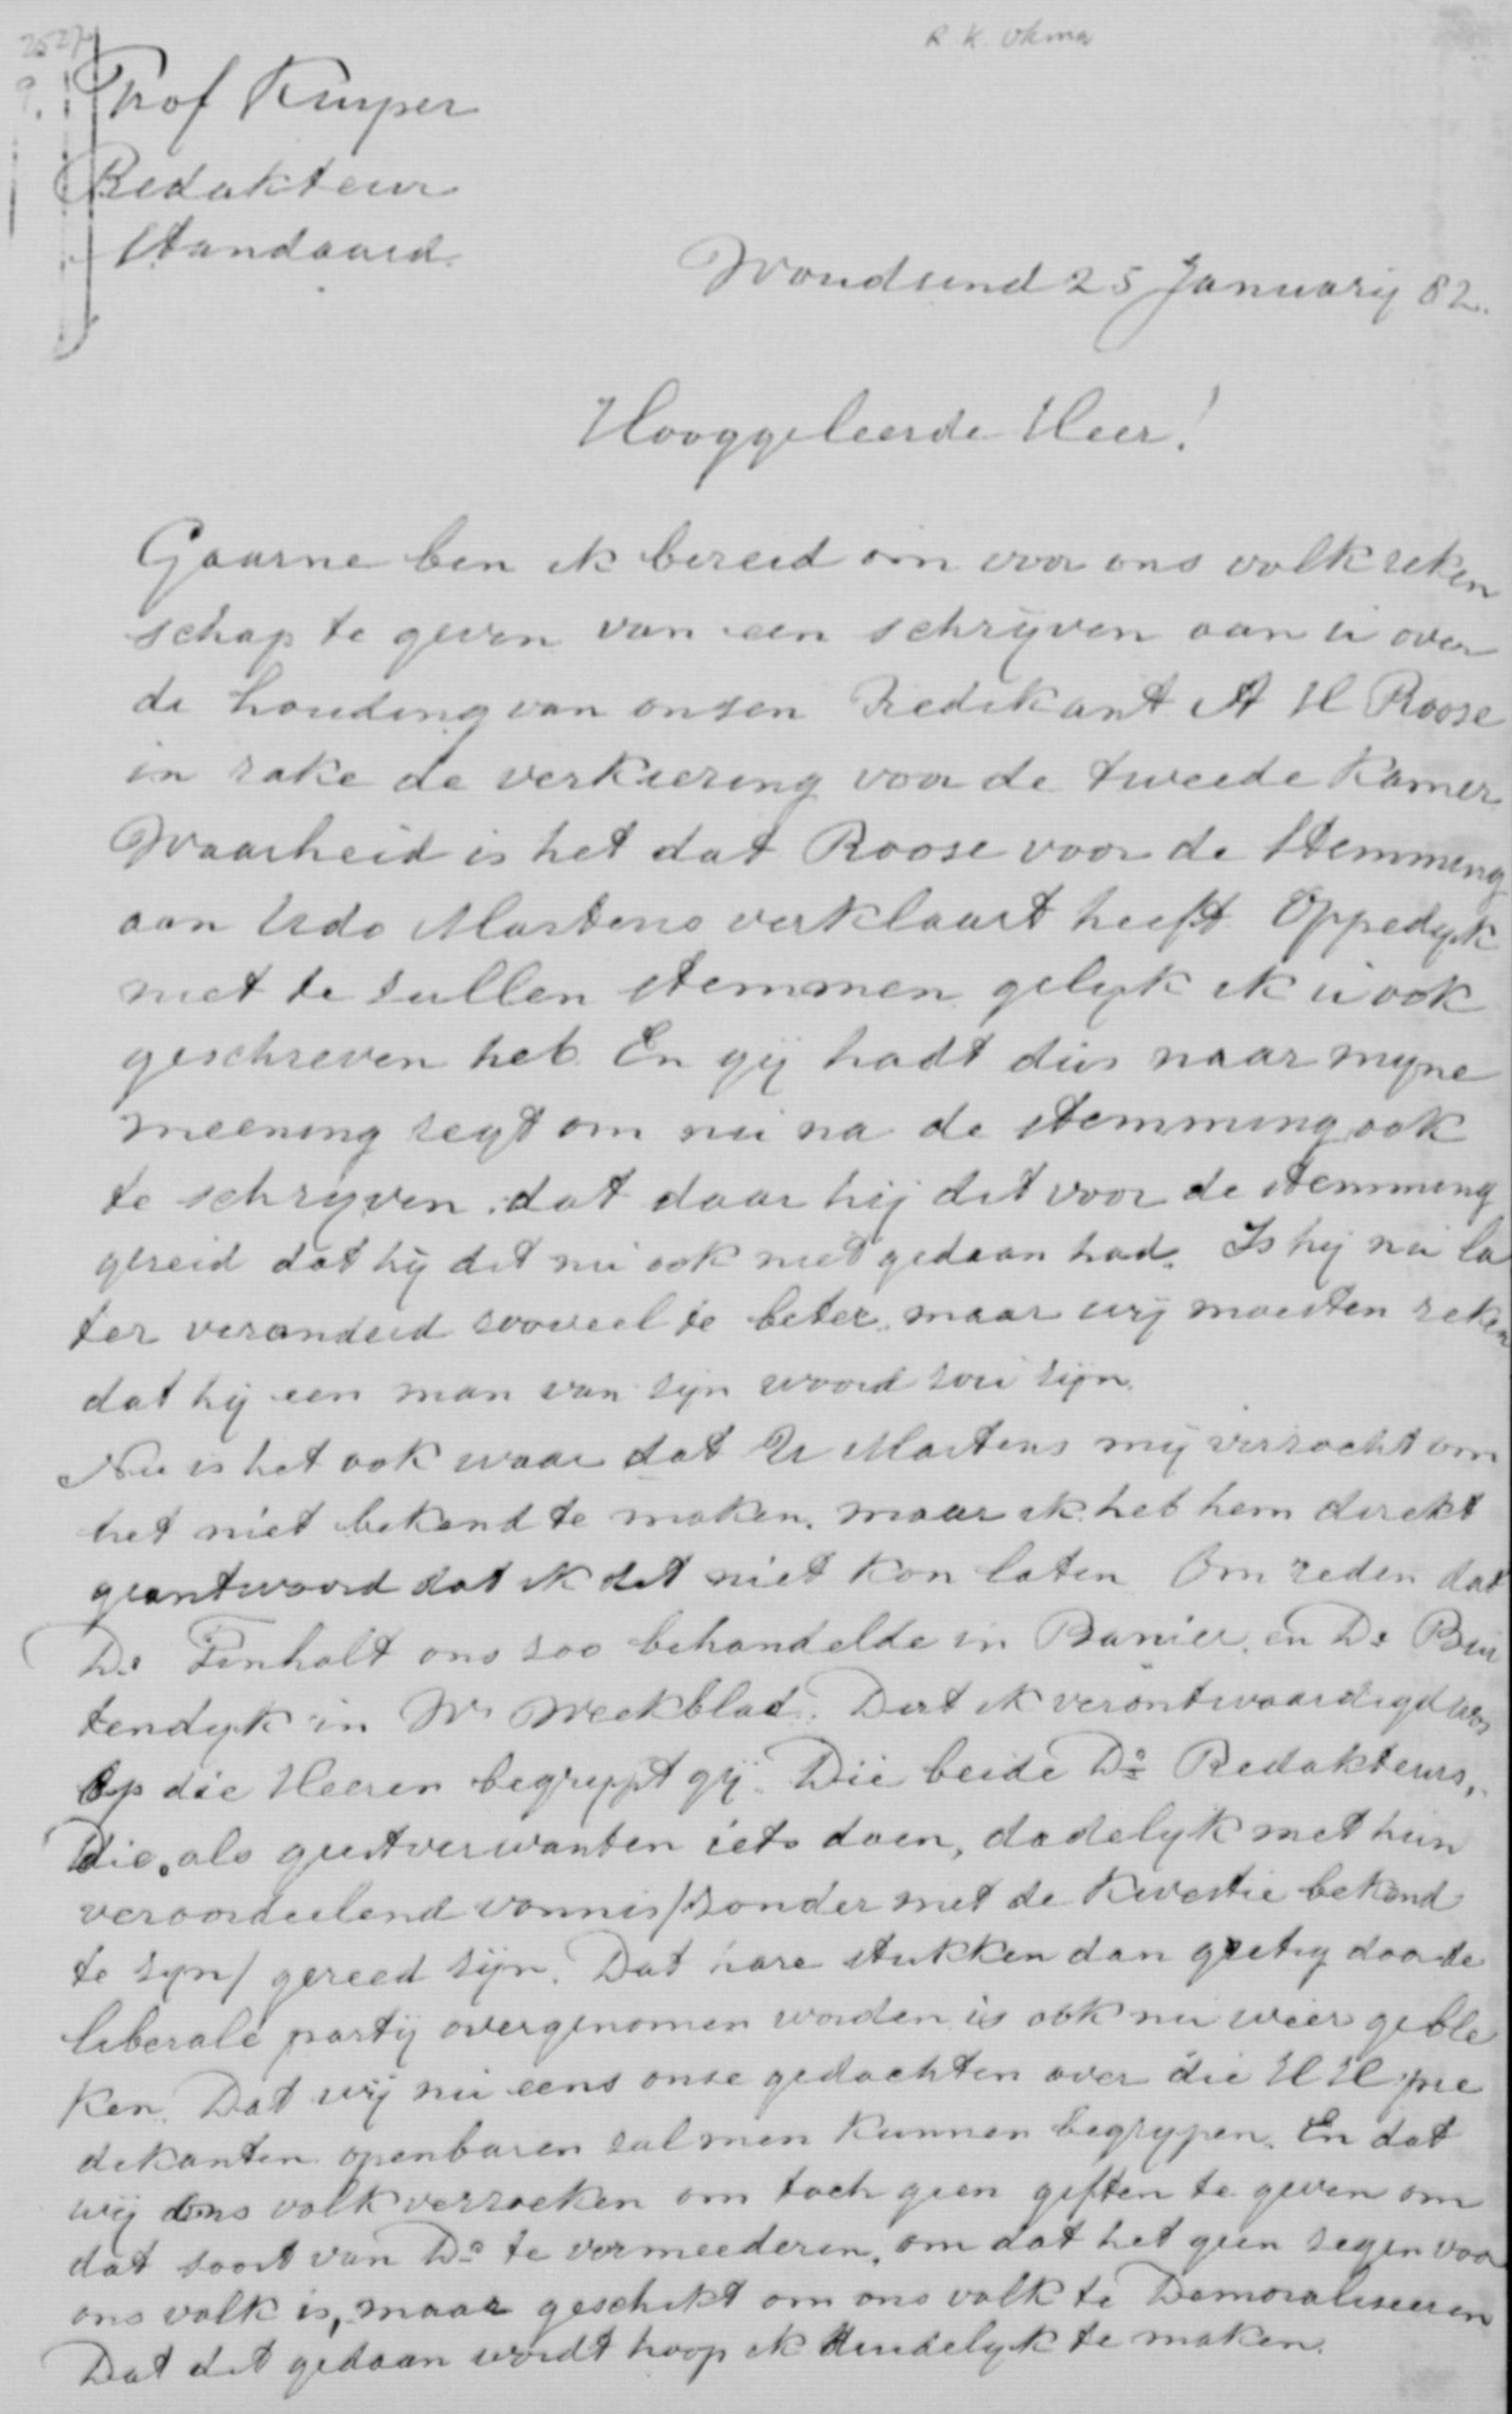 2527
R K Okma
Prof Kuyper
Redakteur
Standaard.
Woudsend 25 Januarij 82.
Hooggeleerde Heer!
Gaarne ben ik bereid om voor ons volk reken
schap te geven van een schrijven aan u over
de houding van onsen Predikant A H Roose
in sake de verkiesing voor de tweede Kamer
Waarheid is het dat Roose voor de Stemming
aan Udo Martens verklaart heeft Oppedyk
niet te sullen stemmen gelyk ik u ook
geschreven heb. En gij hadt dus naar myne
meening regt om nu na de stemming ook
te schryven dat daar hij dit voor de stemming
geseid dat hij dit nu ook niet gedaan had. Is hij nu la
ter veranderd sooveel te beter. maar wij moesten reken
dat hij een man van sijn woord sou sijn.
Nu is het ook waar dat U Martens mij versocht om
het niet bekend te maken. maar ik heb hem direkt
geantwoord dat ik dat niet kon laten Om reden dat
Ds Finholt ons soo behandelde in Banier. en Ds Bui
tendyk in W. Weekblad. Dat ik verontwaardigd was
op die Heeren begrypt gij. Die beide Ds Redakteurs,
Die, als geestverwanten iets doen, dadelyk met hun
veroordeelend vonnis /sonder met de kwestie bekend
te syn/ gereed sijn. Dat hare stukken dan gretig door de
liberale partij overgenomen worden is ook nu weer geble
ken. Dat wij nu eens onse gedachten over die H H pre
dikanten openbaren sal men kunnen begrypen. En dat
wij ons volk versoeken om toch geen giften te geven om
dat soort van Ds te vermeederen, om dat het geen segen voor
ons volk is, maar geschikt om ons volk te Demoraliseeren
Dat dit gedaan wordt hoop ik duidelyk te maken.